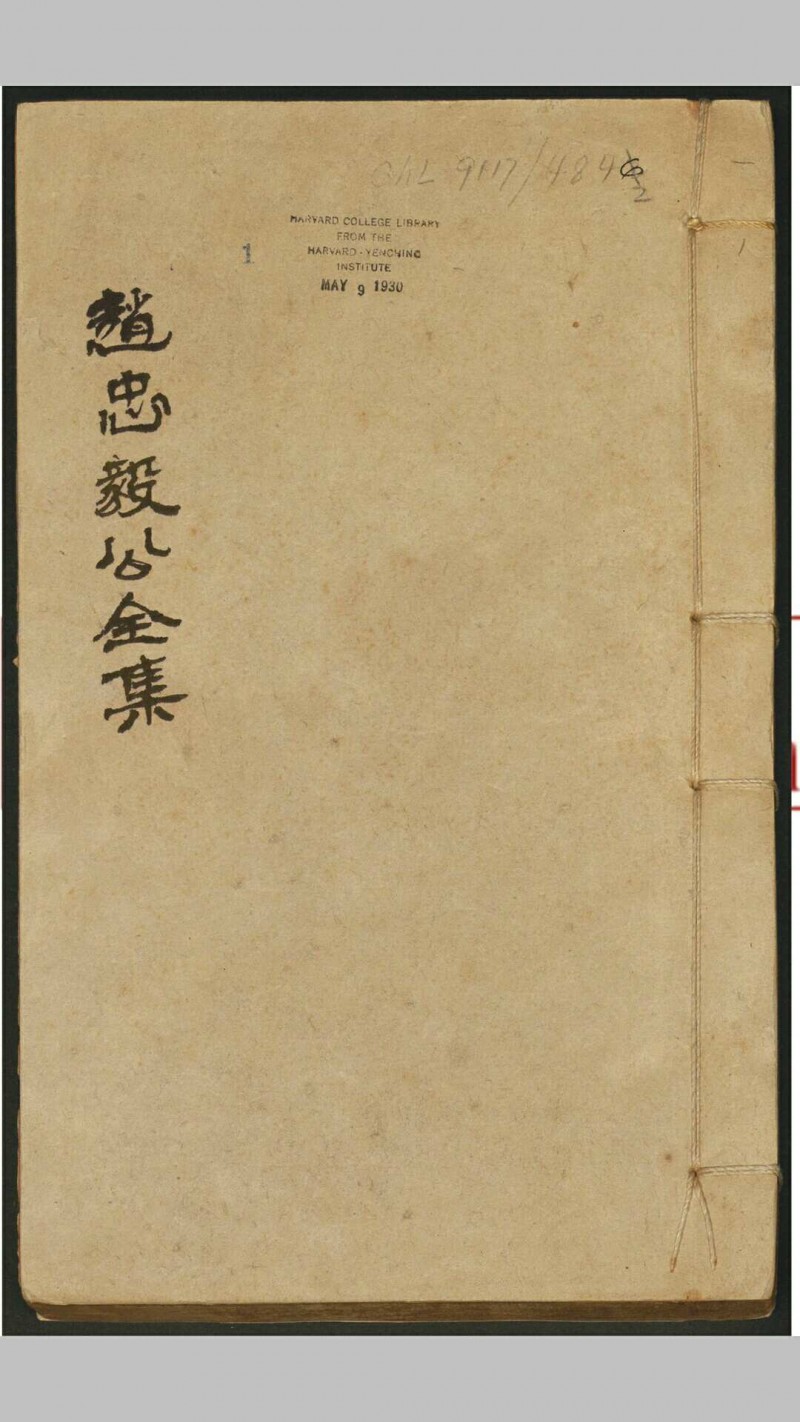 9117/484
HARVARD COLLEGE LIBRARY
FROM THE
HARVARD-YENCHING
INSTITUTE
MAY 9 1930
1
趙忠毅公全集
一